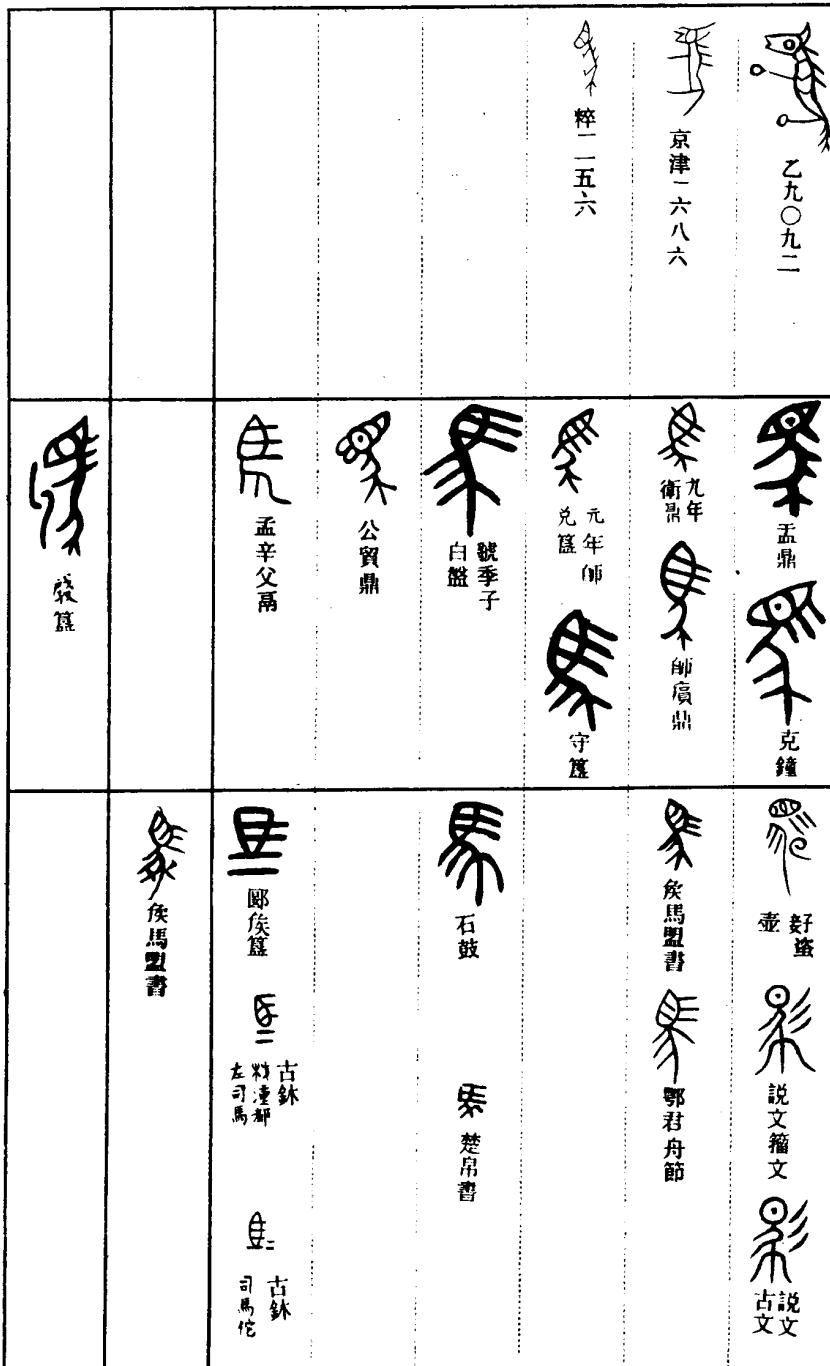 乙九〇九二
京津一六八六
粹一一五六
盂鼎
克鐘
九年
衛鼎
師𤸫鼎
元年師
兌簋
守簋
虢季子
白盤
公貿鼎
孟辛父鬲
𣪘簋
𧊒
壺
說文籀文
說文
古文
侯馬盟書
鄂君舟節
石鼓
楚帛書
郾侯簋
古鉨
左司馬
古鉨
司馬㐌
侯馬盟書